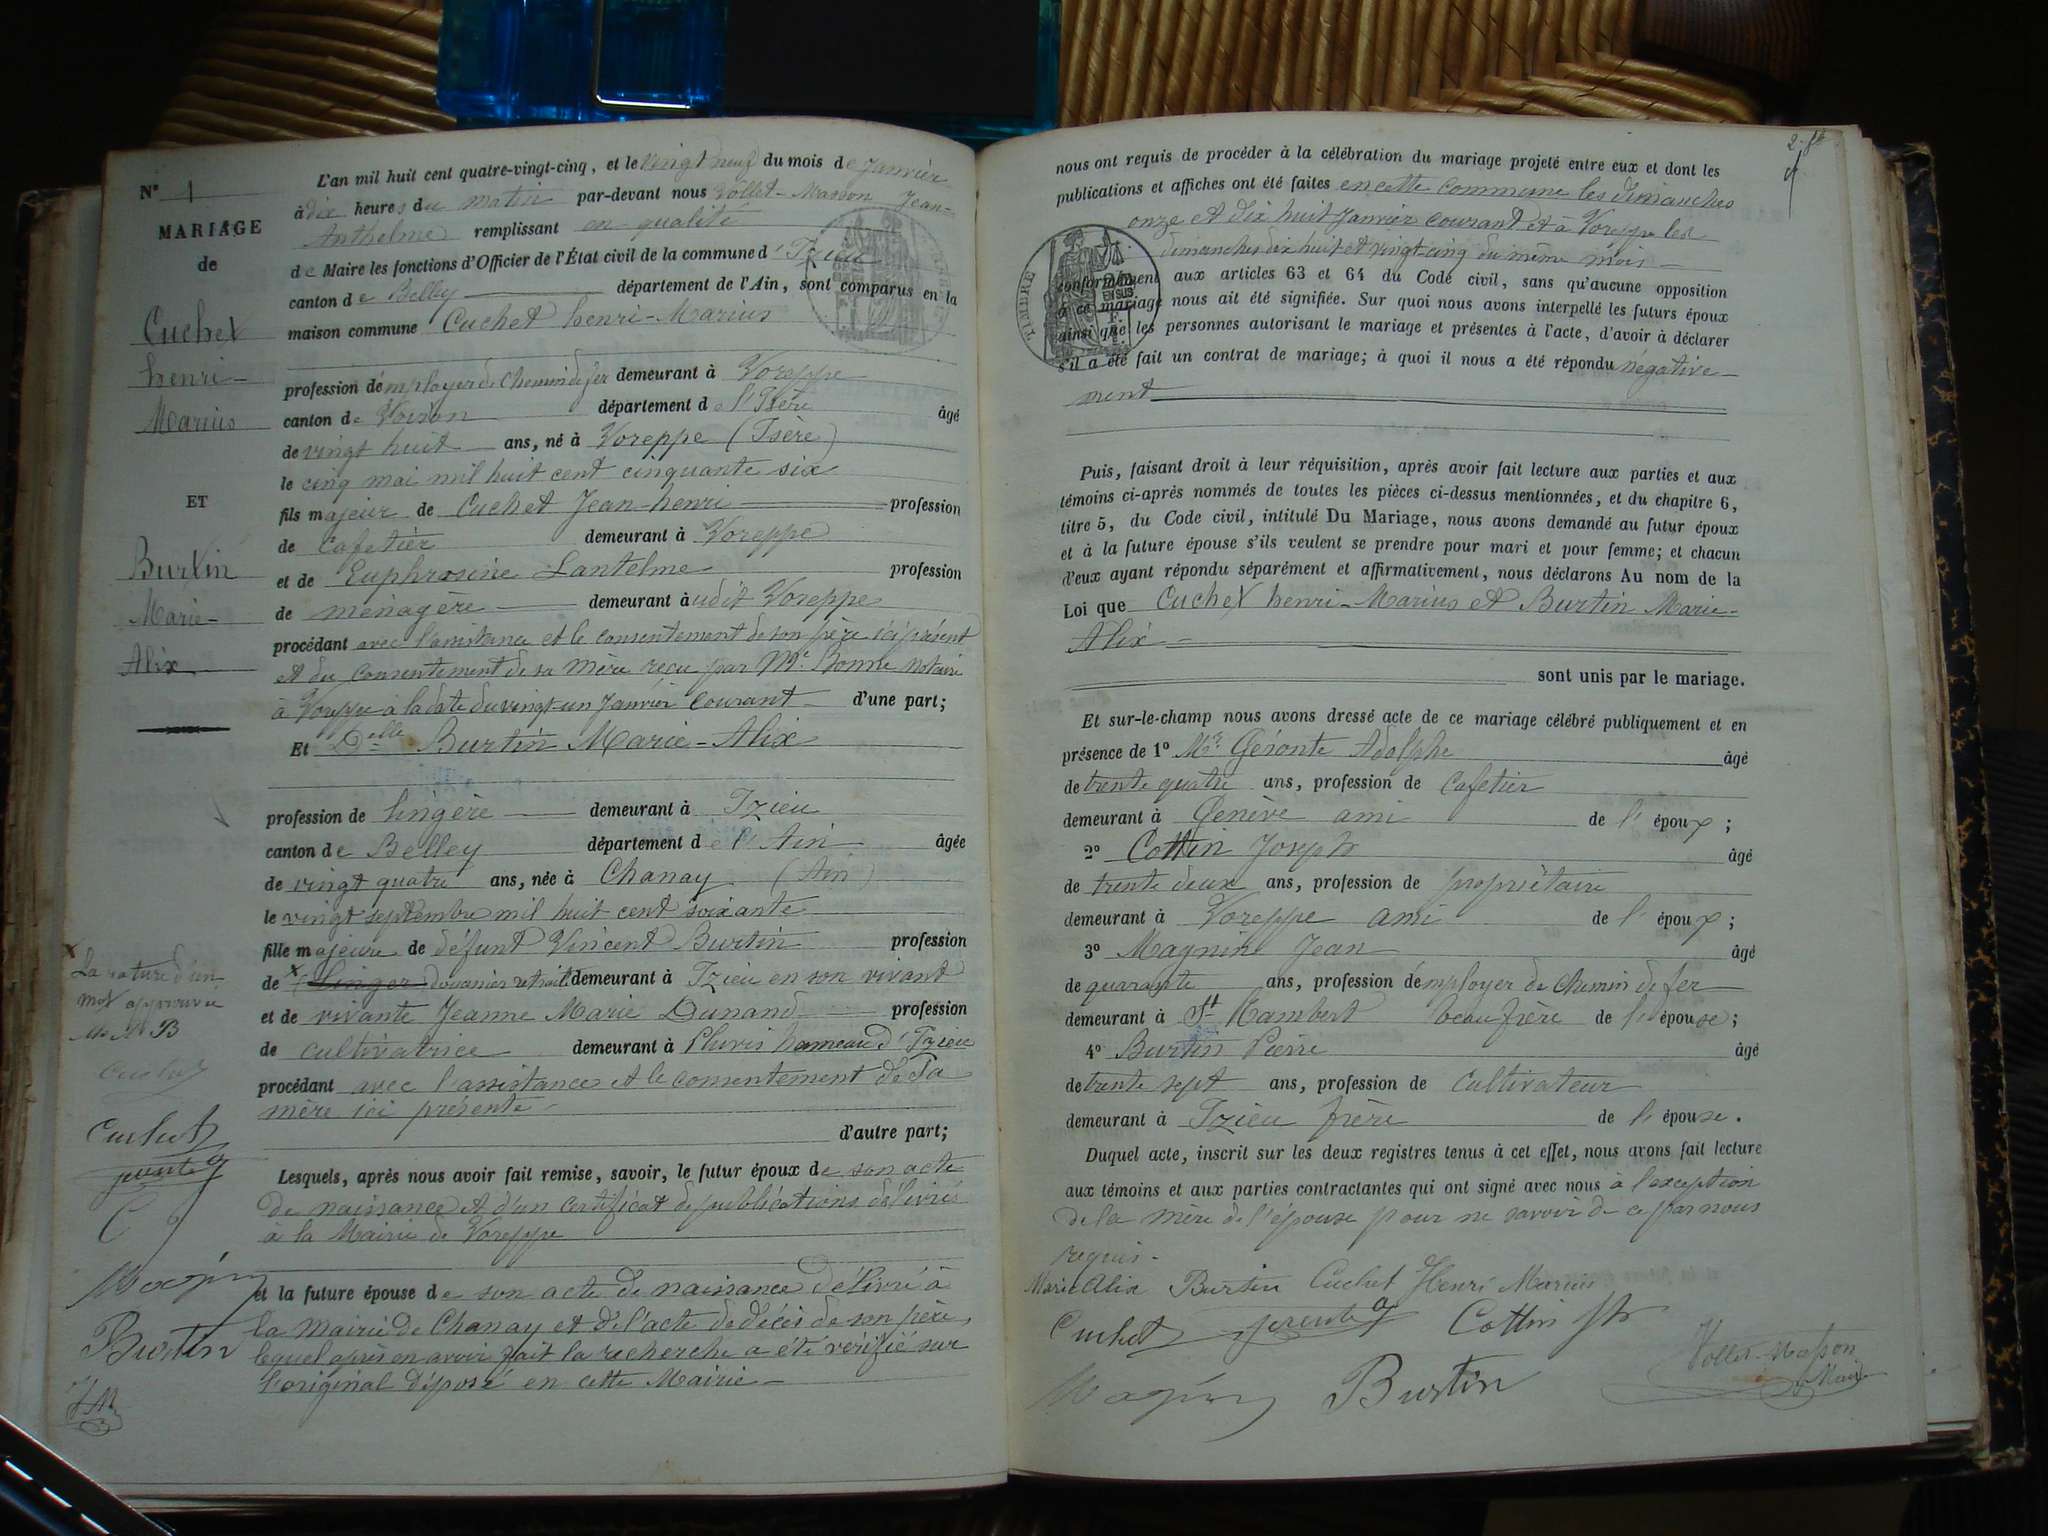 N° 1
MARIAGE
de
Cuchet
henri-
Marius
ET
Burtin
Marie-
Alix
L'an mil huit cent quatre-vingt-cinq, et le vingt neuf du mois de Janvier
à dix heures du matin par-devant nous Vollet-Masson Jean-
Anthelme remplissant en qualité
de Maire les fonctions d'Officier de l'État civil de la commune d'Izieu
canton de Belley département de l'Ain, sont comparus en la
maison commune Cuchet henri-Marius
profession d'employer de Chemin de fer demeurant à Voreppe
canton de Voiron département de l'Isère âgé
de vingt huit ans, né à Voreppe (Isère)
le cinq mai mil huit cent cinquante six
fils majeur de Cuchet Jean-henri profession
de cafetier demeurant à Voreppe
et de Euphrosine Lantelme profession
de ménagère demeurant à udit Voreppe
procédant avec l'assistance et le consentement de son père ici présent
et du consentement de sa mère reçu par Me Bonne notaire
à Voreppe à la date du vingt-un Janvier courant d'une part;
Et Delle Burtin Marie-Alix
profession de lingère demeurant à Izieu
canton de Belley département de l'Ain âgée
de vingt quatre ans, née à Chanay (Ain)
le vingt septembre mil huit cent soixante
fille majeure de défunt Vincent Burtin profession
de x douanier retraité demeurant à Izieu en son vivant
et de vivante Jeanne Marie Dunand profession
de cultivatrice demeurant à Pluvis hameau d'Izieu
procédant avec l'assistance et le consentement de sa
mère ici présente
d'autre part;
Lesquels, après nous avoir fait remise, savoir, le futur époux de son acte
de naissance et d'un certificat de publications délivrés
à la Mairie de Voreppe
et la future épouse de son acte de naissance délivré à
la Mairie de Chanay et de l'acte de décès de son père,
lequel après en avoir fait la recherche a été vérifié sur
l'original déposé en cette Mairie
x
La rature d'un
mot approuvée
M A B
Cuchet
Cuchet
C
Magnin
Burtin
nous ont requis de procéder à la célébration du mariage projeté entre eux et dont les
publications et affiches ont été faites en cette commune les dimanches
onze et dix huit Janvier courant et à Voreppe les
dimanches dix huit et vingt-cinq du même mois
conformément aux articles 63 et 64 du Code civil, sans qu'aucune opposition
à ce mariage nous ait été signifiée. Sur quoi nous avons interpellé les futurs époux
ainsi que les personnes autorisant le mariage et présentes à l'acte, d'avoir à déclarer
s'il a été fait un contrat de mariage; à quoi il nous a été répondu négative-
ment
TIMBRE
EN SUS
Puis, faisant droit à leur réquisition, après avoir fait lecture aux parties et aux
témoins ci-après nommés de toutes les pièces ci-dessus mentionnées, et du chapitre 6,
titre 5, du Code civil, intitulé Du Mariage, nous avons demandé au futur époux
et à la future épouse s'ils veulent se prendre pour mari et pour femme; et chacun
d'eux ayant répondu séparément et affirmativement, nous déclarons Au nom de la
Loi que Cuchet henri-Marius et Burtin Marie-
Alix
sont unis par le mariage.
Et sur-le-champ nous avons dressé acte de ce mariage célébré publiquement et en
présence de 1° Mr Géronte Adolphe âgé
de trente quatre ans, profession de cafetier
demeurant à Genève ami de l'époux;
2° Cottin Joseph âgé
de trente deux ans, profession de propriétaire
demeurant à Voreppe ami de l'époux;
3° Magnin Jean âgé
de quarante ans, profession d'employer de chemin de fer
demeurant à St Rambert beau frère de l'épouse;
4° Burtin Pierre âgé
de trente sept ans, profession de cultivateur
demeurant à Izieu frère de l'épouse.
Duquel acte, inscrit sur les deux registres tenus à cet effet, nous avons fait lecture
aux témoins et aux parties contractantes qui ont signé avec nous à l'exception
de la mère de l'épouse pour ne savoir de ce par nous
requis.
Marie Alix Burtin Cuchet Henri Marius
Cuchet Cottin Jh
Magnin Burtin Vollet-Masson
Maire